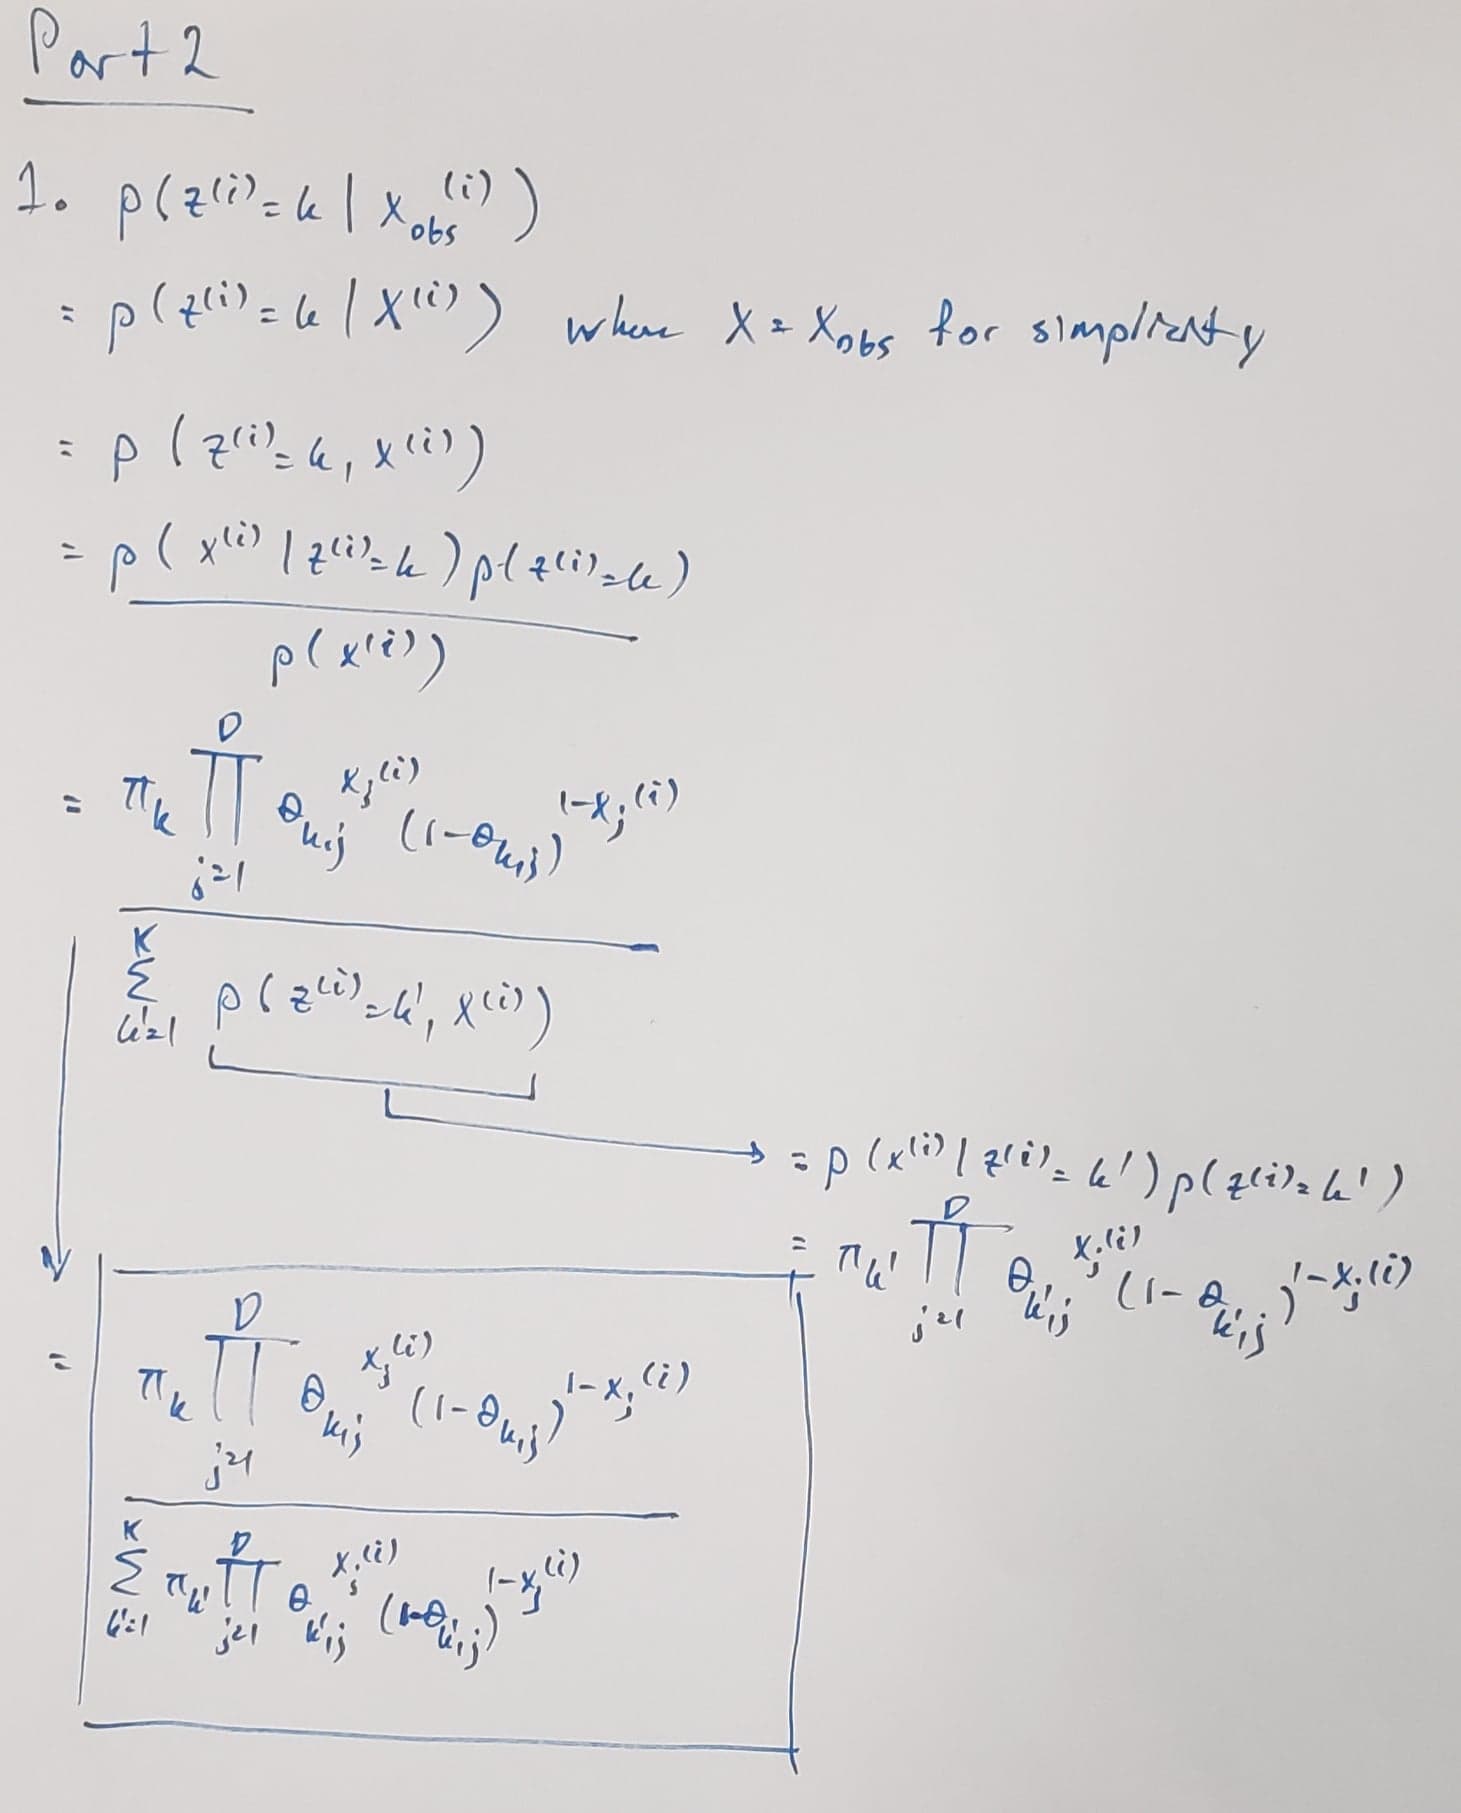 Part 2
1. p(z^(i) = k | x_obs^(i))
= p(z^(i) = k | x^(i)) where x = x_obs for simplicity
= p(z^(i) = k, x^(i))
= p(x^(i) | z^(i) = k) p(z^(i) = k)
p(x^(i))
= π_k ∏_{j=1}^{D} θ_{k,j}^{x_j^(i)} (1-θ_{k,j})^{1-x_j^(i)}
∑_{k'=1}^{K} p(z^(i) = k', x^(i))
→ = p(x^(i) | z^(i) = k') p(z^(i) = k')
= π_{k'} ∏_{j=1}^{D} θ_{k',j}^{x_j^(i)} (1-θ_{k',j})^{1-x_j^(i)}
= π_k ∏_{j=1}^{D} θ_{k,j}^{x_j^(i)} (1-θ_{k,j})^{1-x_j^(i)}
∑_{k'=1}^{K} π_{k'} ∏_{j=1}^{D} θ_{k',j}^{x_j^(i)} (1-θ_{k',j})^{1-x_j^(i)}